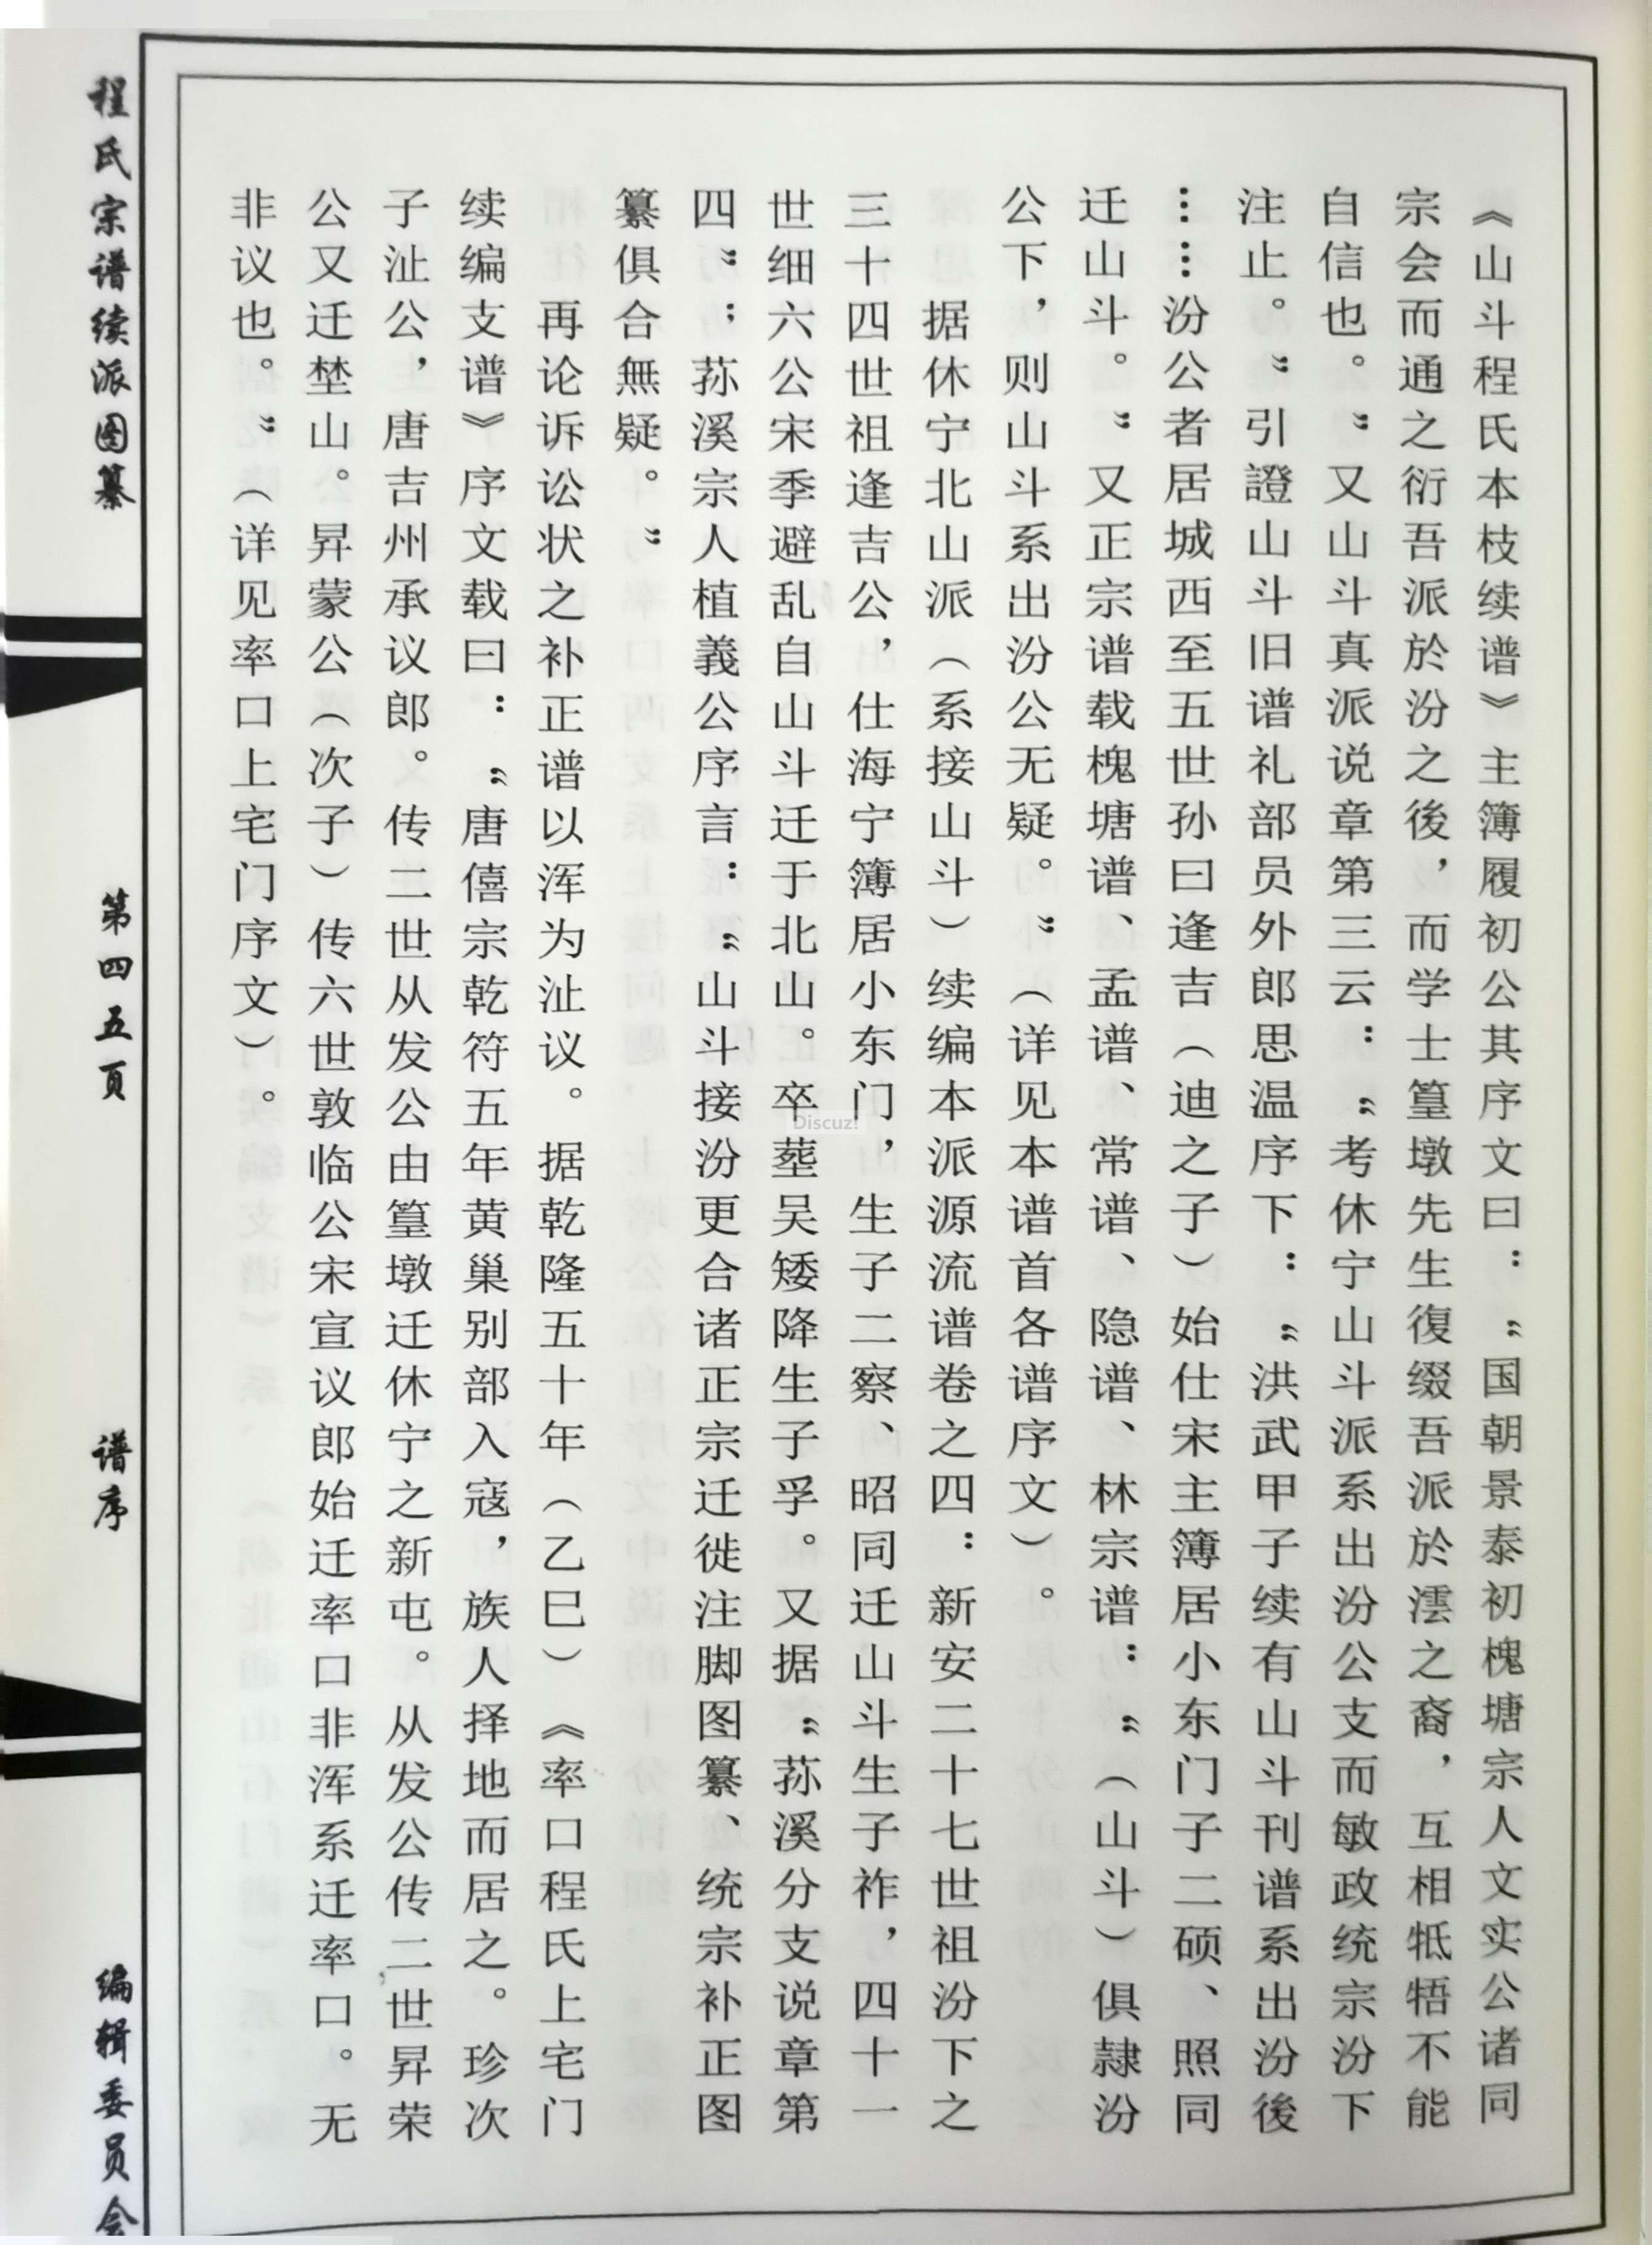 《山斗程氏本枝续谱》主簿履初公其序文曰：“国朝景泰初槐塘宗人文实公诸同
宗会而通之衍吾派於汾之後，而学士篁墩先生復缀吾派於澐之裔，互相牴牾不能
自信也。”又山斗真派说章第三云：“考休宁山斗派系出汾公支而敏政统宗汾下
注止。”引證山斗旧谱礼部员外郎思温序下：“洪武甲子续有山斗刊谱系出汾後
……汾公者居城西至五世孙曰逢吉（迪之子）始仕宋主簿居小东门子二硕、照同
迁山斗。”又正宗谱载槐塘谱、孟谱、常谱、隐谱、林宗谱：“（山斗）俱隸汾
公下，则山斗系出汾公无疑。”（详见本谱首各谱序文）。
据休宁北山派（系接山斗）续编本派源流谱卷之四：新安二十七世祖汾下之
三十四世祖逢吉公，仕海宁簿居小东门，生子二察、昭同迁山斗生子祚，四十一
世细六公宋季避乱自山斗迁于北山。卒塟吴矮降生子孚。又据“荪溪分支说章第
四”；荪溪宗人植義公序言：“山斗接汾更合诸正宗迁徙注脚图纂、统宗补正图
纂俱合無疑。”
再论诉讼状之补正谱以浑为沚议。据乾隆五十年（乙巳）《率口程氏上宅门
续编支谱》序文载曰：“唐僖宗乾符五年黄巢别部入寇，族人择地而居之。珍次
子沚公，唐吉州承议郎。传二世从发公由篁墩迁休宁之新屯。从发公传二世昇荣
公又迁埜山。昇蒙公（次子）传六世敦临公宋宣议郎始迁率口非浑系迁率口。无
非议也。”（详见率口上宅门序文）。
程氏宗谱续派图纂
第四五页
谱序
编辑委员会
Discuz!